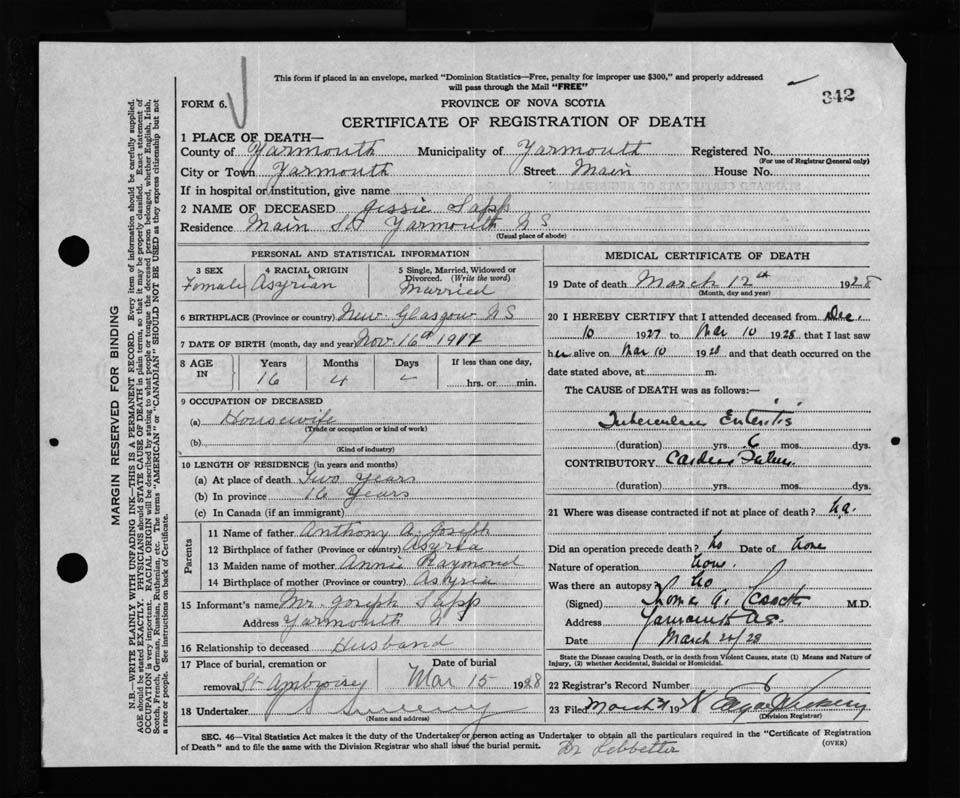 This form if placed in an envelope, marked "Dominion Statistics—Free, penalty for improper use $300," and properly addressed
will pass through the Mail "FREE"
FORM 6.
PROVINCE OF NOVA SCOTIA
342
CERTIFICATE OF REGISTRATION OF DEATH
1 PLACE OF DEATH—
County of Yarmouth Municipality of Yarmouth Registered No.
(For use of Registrar General only)
City or Town Yarmouth Street Main House No.
If in hospital or institution, give name
2 NAME OF DECEASED Jessie Sapp
Residence Main St Yarmouth NS
(Usual place of abode)
PERSONAL AND STATISTICAL INFORMATION
3 SEX
Female
4 RACIAL ORIGIN
Asyrian
5 Single, Married, Widowed or
Divorced. (Write the word)
Married
6 BIRTHPLACE (Province or country) New Glasgow NS
7 DATE OF BIRTH (month, day and year) Nov. 16th 1911
8 AGE
IN
Years
16
Months
4
Days
If less than one day,
hrs. or min.
9 OCCUPATION OF DECEASED
(a) Housewife
(Trade or occupation or kind of work)
(b)
(Kind of industry)
10 LENGTH OF RESIDENCE (in years and months)
(a) At place of death Two Years
(b) In province 16 Years
(c) In Canada (if an immigrant)
Parents
11 Name of father Anthony A. Joseph
12 Birthplace of father (Province or country) Asyria
13 Maiden name of mother Annie Raymond
14 Birthplace of mother (Province or country) Asyria
15 Informant's name Mr Joseph Sapp
Address Yarmouth NS
16 Relationship to deceased Husband
17 Place of burial, cremation or
removal St Ambrose
Date of burial
Mar 15 1928
18 Undertaker Sweeny
(Name and address)
MEDICAL CERTIFICATE OF DEATH
19 Date of death March 12th 1928
(Month, day and year)
20 I HEREBY CERTIFY that I attended deceased from Dec.
10 1927 to Mar 10 1928 that I last saw
her alive on Mar 10 1928 and that death occurred on the
date stated above, at m.
The CAUSE OF DEATH was as follows:
Tubercular Enteritis
(duration) yrs. 6 mos. dys.
CONTRIBUTORY Cardiac
(duration) yrs. mos. dys.
21 Where was disease contracted if not at place of death?
Did an operation precede death? No Date of None
Nature of operation None
Was there an autopsy? No
(Signed) M.D.
Address Yarmouth
Date March 20/28
State the Disease causing Death, or in death from Violent Causes, state (1) Means and Nature of
Injury, (2) whether Accidental, Suicidal or Homicidal.
22 Registrar's Record Number 6
23 Filed March 1928
(Division Registrar)
SEC. 46—Vital Statistics Act makes it the duty of the Undertaker or person acting as Undertaker to obtain all the particulars required in the "Certificate of Registration
of Death" and to file the same with the Division Registrar who shall issue the burial permit.
(OVER)
Dr Lebbetter
MARGIN RESERVED FOR BINDING
N.B.—WRITE PLAINLY WITH UNFADING INK—THIS IS A PERMANENT RECORD. Every item of information should be carefully supplied.
AGE should be stated EXACTLY. PHYSICIANS should STATE CAUSE OF DEATH in plain terms, so that it may be properly classified. Exact statement of
OCCUPATION is very important. RACIAL ORIGIN will be described by stating to what people or tongue the deceased person belonged, whether English, Irish,
Scotch, French, German, Russian, Ruthenian, etc. The terms "AMERICAN" or "CANADIAN" SHOULD NOT BE USED as they express citizenship but not
a race or people. See instructions on back of Certificate.